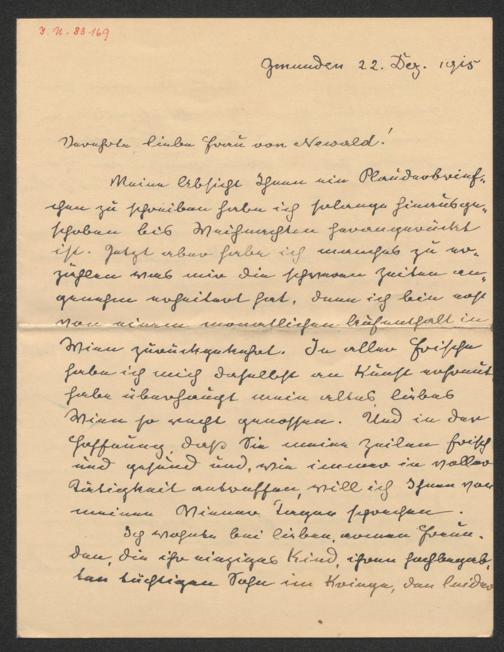 I. N. 83.169
Gmunden 22. Dez. 1915
Verehrte liebe Frau von Newald!
Meine Absicht Ihnen ein Plauderbrief-
chen zu schreiben habe ich solange hinausge-
schoben bis Weihnachten herangerückt
ist. Jetzt aber habe ich manches zu er-
zählen was mir die schweren Zeiten an-
genehm erheitert hat, denn ich bin erst
von einem monatlichen Aufenthalt in
Wien zurückgekehrt. In aller Frische
habe ich mich daselbst an Kunst erfreut
habe überhaupt mein altes liebes
Wien so recht genossen. Und in der
Hoffnung daß Sie meine Zeilen frisch
und gesund und, wie immer in voller
Tätigkeit antreffen, will ich Ihnen von
meinen Wiener Tagen sprechen.
Ich wohnte bei lieben, armen Freun-
den, die ihr einziges Kind, ihren hochbegab-
ten tüchtigen Sohn im Kriege, den leider